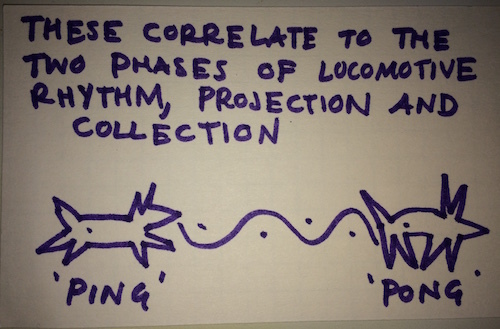 THESE CORRELATE TO THE
TWO PHASES OF LOCOMOTIVE
RHYTHM, PROJECTION AND
COLLECTION
'PING' 'PONG'